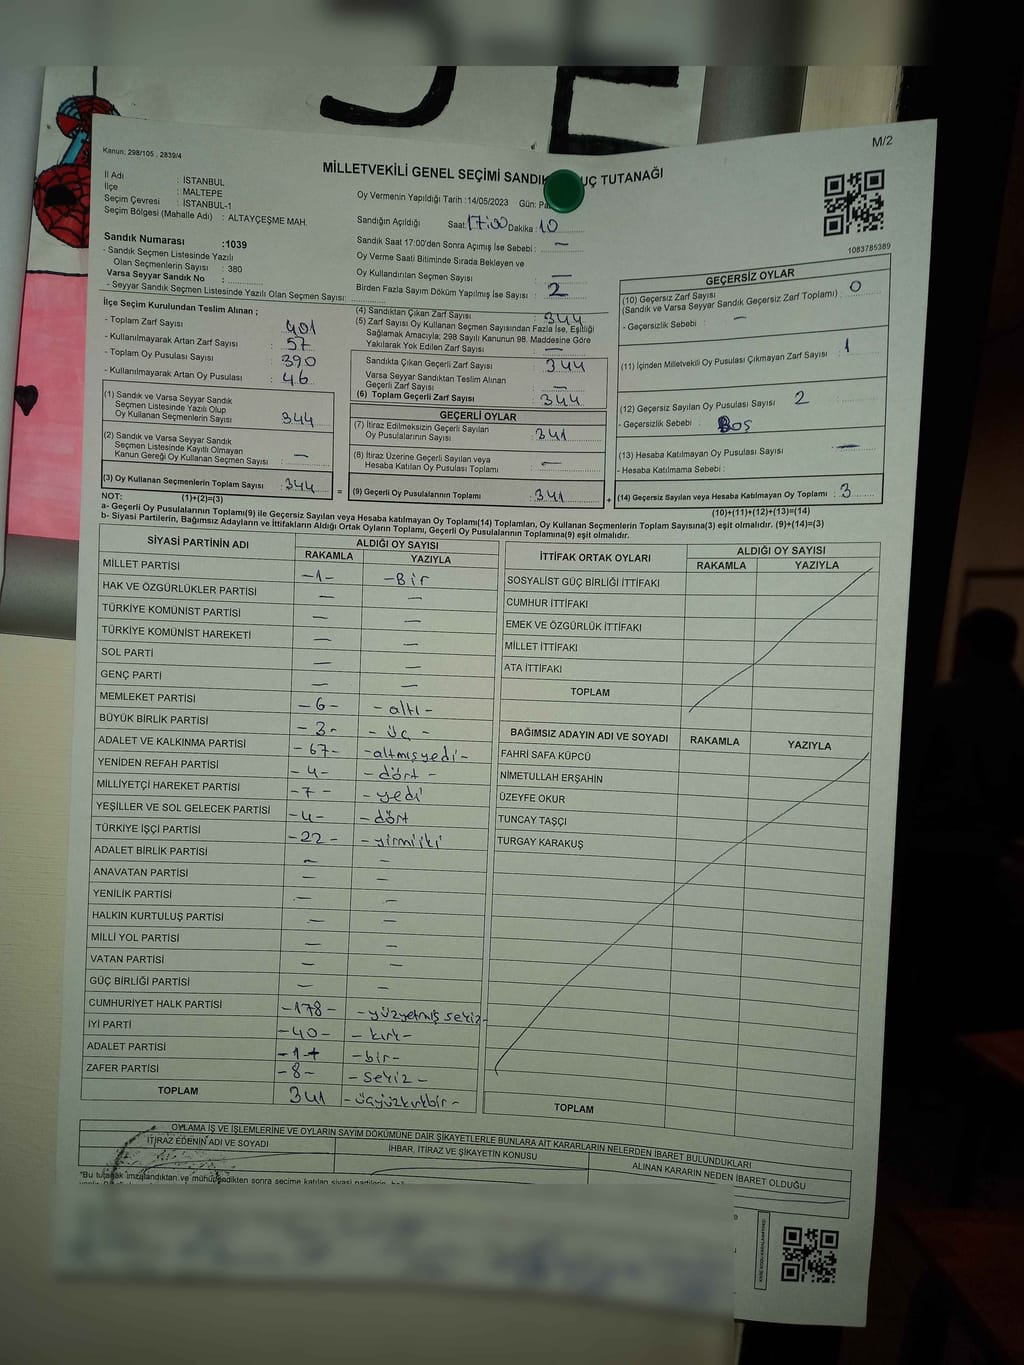 SE
M/2
Kanun; 298/105 , 2839/4
MİLLETVEKİLİ GENEL SEÇİMİ UÇ TUTANAĞI
İl Adı : İSTANBUL
İlçe : MALTEPE
Seçim Çevresi : İSTANBUL-1
Seçim Bölgesi (Mahalle Adı) : ALTAYÇEŞME MAH.
Sandık Numarası :1039
- Sandık Seçmen Listesinde Yazılı
Olan Seçmenlerin Sayısı : 380
Varsa Seyyar Sandık No :
- Seyyar Sandık Seçmen Listesinde Yazılı Olan Seçmen Sayısı:
Oy Vermenin Yapıldığı Tarih :14/05/2023 Gün:
Sandığın Açıldığı Saat: 17:00 Dakika : 10
Sandık Saat 17:00'den Sonra Açımış İse Sebebi : —
Oy Verme Saati Bitiminde Sırada Bekleyen ve
Oy Kullandırılan Seçmen Sayısı —
Birden Fazla Sayım Döküm Yapılmış İse Sayısı : 2
1083785389
İlçe Seçim Kurulundan Teslim Alınan ;
- Toplam Zarf Sayısı : 401
- Kullanılmayarak Artan Zarf Sayısı : 57
- Toplam Oy Pusulası Sayısı : 390
- Kullanılmayarak Artan Oy Pusulası : 46
(1) Sandık ve Varsa Seyyar Sandık
Seçmen Listesinde Yazılı Olup
Oy Kullanan Seçmenlerin Sayısı : 344
(2) Sandık ve Varsa Seyyar Sandık
Seçmen Listesinde Kayıtlı Olmayan
Kanun Gereği Oy Kullanan Seçmen Sayısı : —
(3) Oy Kullanan Seçmenlerin Toplam Sayısı : 344
(4) Sandıktan Çıkan Zarf Sayısı : 344
(5) Zarf Sayısı Oy Kullanan Seçmen Sayısından Fazla İse, Eşitliği
Sağlamak Amacıyla; 298 Sayılı Kanunun 98. Maddesine Göre
Yakılarak Yok Edilen Zarf Sayısı :
Sandıkta Çıkan Geçerli Zarf Sayısı : 344
Varsa Seyyar Sandıktan Teslim Alınan
Geçerli Zarf Sayısı : —
(6) Toplam Geçerli Zarf Sayısı : 344
GEÇERLİ OYLAR
(7) İtiraz Edilmeksizin Geçerli Sayılan
Oy Pusulalarının Sayısı : 341
(8) İtiraz Üzerine Geçerli Sayılan veya
Hesaba Katılan Oy Pusulası Toplamı : —
= (9) Geçerli Oy Pusulalarının Toplamı : 341
GEÇERSİZ OYLAR
(10) Geçersiz Zarf Sayısı
(Sandık ve Varsa Seyyar Sandık Geçersiz Zarf Toplamı) : 0
- Geçersizlik Sebebi : —
(11) İçinden Milletvekili Oy Pusulası Çıkmayan Zarf Sayısı : 1
(12) Geçersiz Sayılan Oy Pusulası Sayısı : 2
- Geçersizlik Sebebi : Boş
(13) Hesaba Katılmayan Oy Pusulası Sayısı : —
- Hesaba Katılmama Sebebi :
+ (14) Geçersiz Sayılan veya Hesaba Katılmayan Oy Toplamı : 3
NOT: (1)+(2)=(3)
(10)+(11)+(12)+(13)=(14)
a- Geçerli Oy Pusulalarının Toplamı(9) ile Geçersiz Sayılan veya Hesaba katılmayan Oy Toplamı(14) Toplamları, Oy Kullanan Seçmenlerin Toplam Sayısına(3) eşit olmalıdır. (9)+(14)=(3)
b- Siyasi Partilerin, Bağımsız Adayların ve İttifakların Aldığı Ortak Oyların Toplamı, Geçerli Oy Pusulalarının Toplamına(9) eşit olmalıdır.
SİYASİ PARTİNİN ADI ALDIĞI OY SAYISI
RAKAMLA YAZIYLA
MİLLET PARTİSİ -1- -Bir
HAK VE ÖZGÜRLÜKLER PARTİSİ — —
TÜRKİYE KOMÜNİST PARTİSİ — —
TÜRKİYE KOMÜNİST HAREKETİ — —
SOL PARTİ — —
GENÇ PARTİ — —
MEMLEKET PARTİSİ -6- -altı-
BÜYÜK BİRLİK PARTİSİ -3- -üç-
ADALET VE KALKINMA PARTİSİ -67- -altmışyedi-
YENİDEN REFAH PARTİSİ -4- -dört-
MİLLİYETÇİ HAREKET PARTİSİ -7- -yedi
YEŞİLLER VE SOL GELECEK PARTİSİ -4- -dört
TÜRKİYE İŞÇİ PARTİSİ -22- -yirmiiki
ADALET BİRLİK PARTİSİ — —
ANAVATAN PARTİSİ — —
YENİLİK PARTİSİ — —
HALKIN KURTULUŞ PARTİSİ — —
MİLLİ YOL PARTİSİ — —
VATAN PARTİSİ — —
GÜÇ BİRLİĞİ PARTİSİ — —
CUMHURİYET HALK PARTİSİ -178- -yüzyetmiş sekiz-
İYİ PARTİ -40- -kırk-
ADALET PARTİSİ -1- -bir-
ZAFER PARTİSİ -8- -sekiz-
TOPLAM 341 -üçyüzkırkbir-
İTTİFAK ORTAK OYLARI ALDIĞI OY SAYISI
RAKAMLA YAZIYLA
SOSYALİST GÜÇ BİRLİĞİ İTTİFAKI
CUMHUR İTTİFAKI
EMEK VE ÖZGÜRLÜK İTTİFAKI
MİLLET İTTİFAKI
ATA İTTİFAKI
TOPLAM
BAĞIMSIZ ADAYIN ADI VE SOYADI RAKAMLA YAZIYLA
FAHRİ SAFA KÜPCÜ
NİMETULLAH ERŞAHİN
ÜZEYFE OKUR
TUNCAY TAŞÇI
TURGAY KARAKUŞ
TOPLAM
OYLAMA İŞ VE İŞLEMLERİNE VE OYLARIN SAYIM DÖKÜMÜNE DAİR ŞİKAYETLERLE BUNLARA AİT KARARLARIN NELERDEN İBARET BULUNDUKLARI
İTİRAZ EDENİN ADI VE SOYADI İHBAR, İTİRAZ VE ŞİKAYETİN KONUSU ALINAN KARARIN NEDEN İBARET OLDUĞU
"Bu tutanak imzalandıktan ve mühürlendikten sonra seçime katılan siyasi partilerin